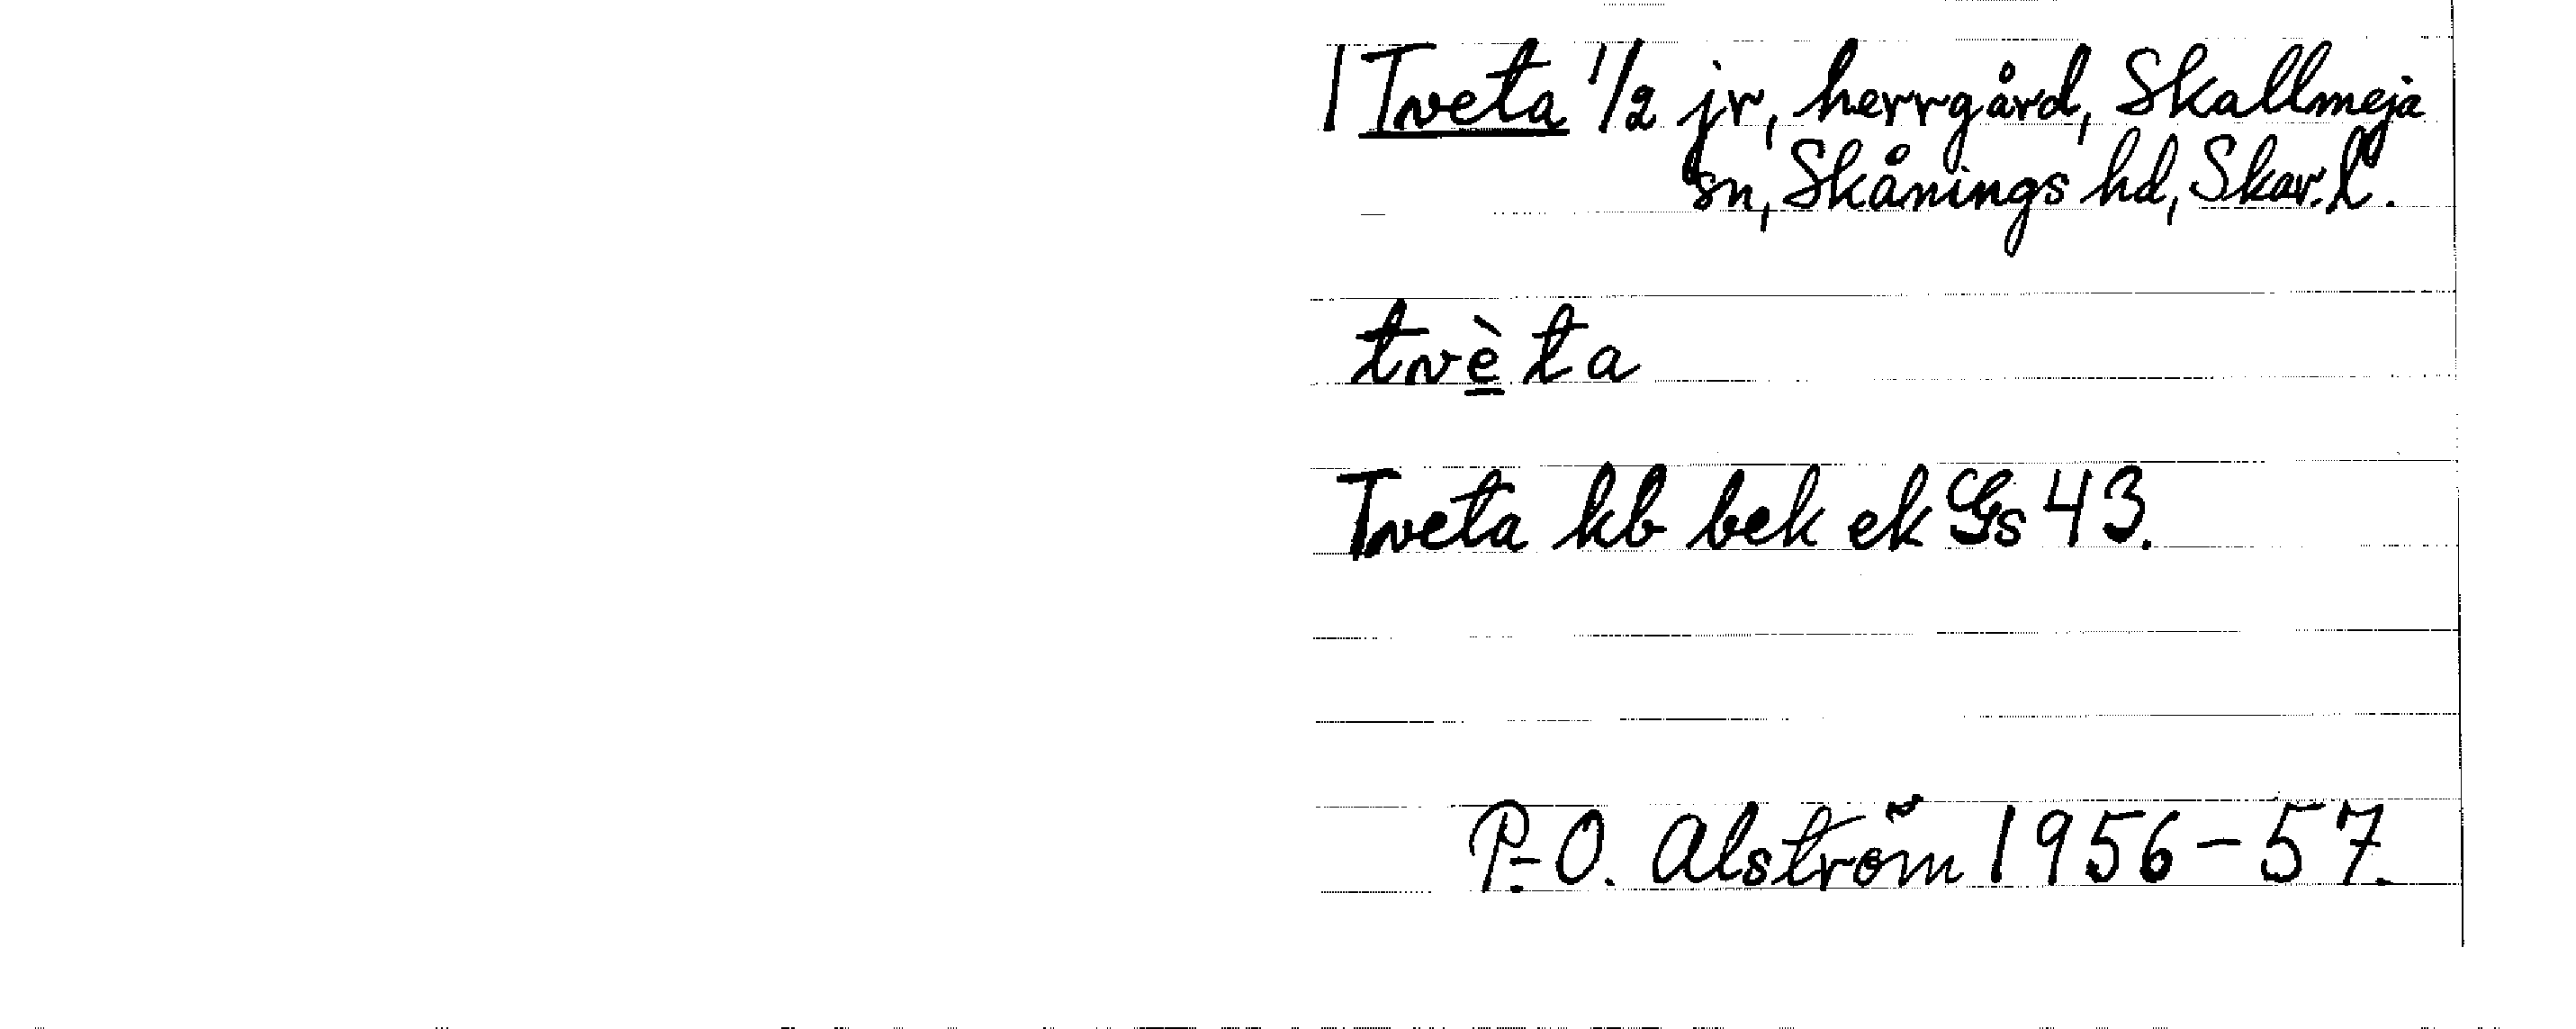 1 Tveta 1/2 jr, herrgård, Skallmeja
sn, Skånings hd, Skar. l.
tvèta
Tveta kb bek ek Gs 43.
P.-O. Alström 1956-57.